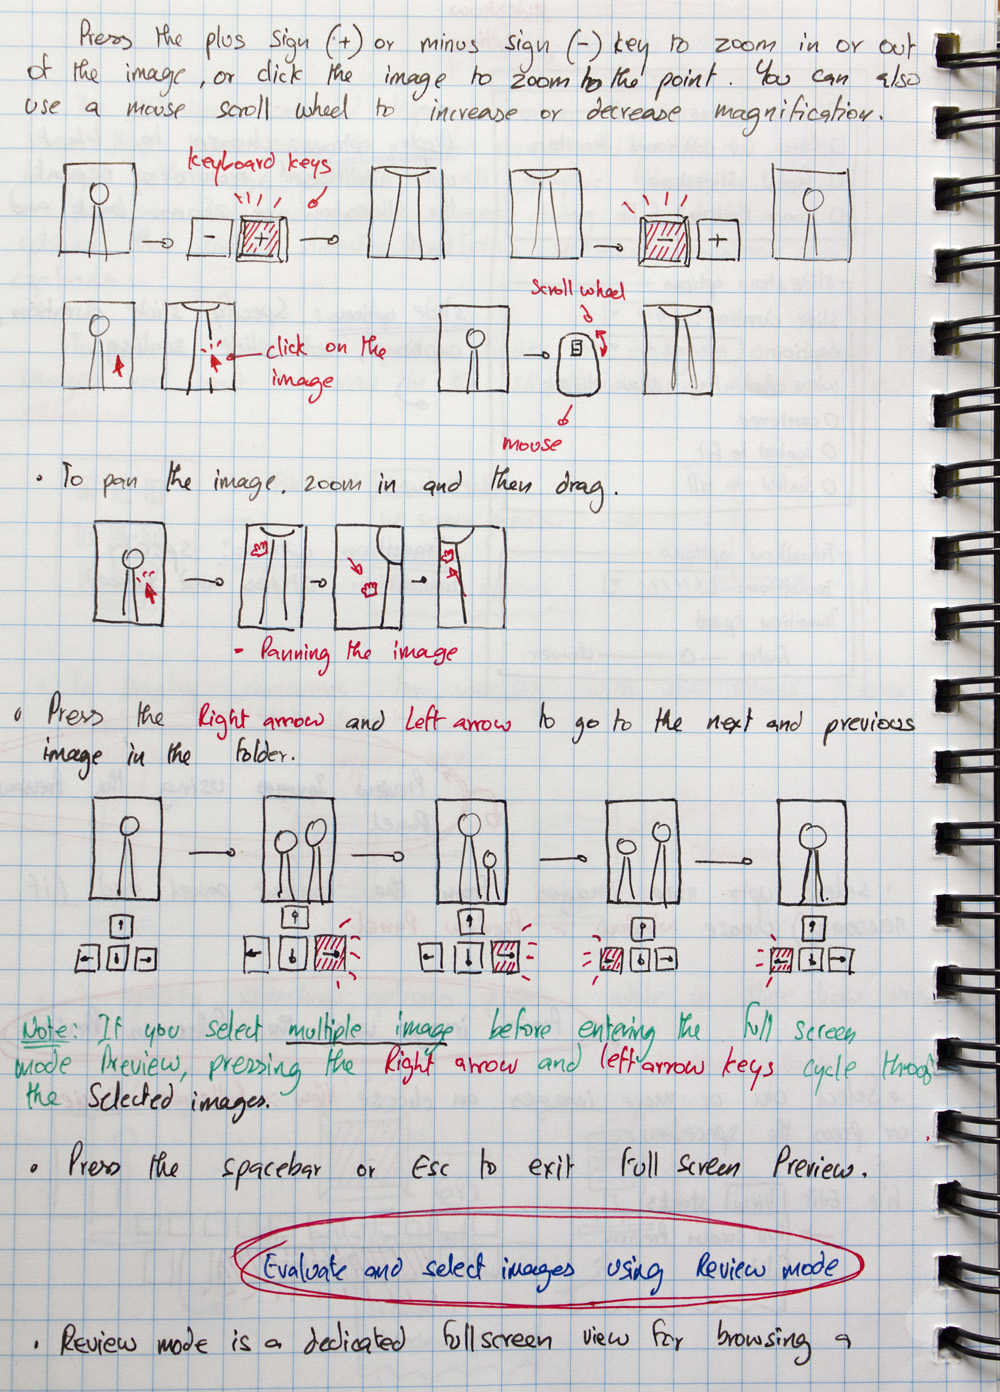 Press the plus sign (+) or minus sign (-) key to zoom in or out
of the image, or click the image to zoom to the point. You can also
use a mouse scroll wheel to increase or decrease magnification.
keyboard keys
- +
- +
scroll wheel
click on the
image
mouse
• To pan the image. zoom in and then drag.
- Panning the image
• Press the Right arrow and Left arrow to go to the next and previous
image in the folder.
Note: If you select multiple image before entering the full screen
mode Preview, pressing the Right arrow and left arrow keys cycle throgh
the selected images.
• Press the spacebar or Esc to exit Full screen Preview.
Evaluate and select images using Review mode
• Review mode is a dedicated fullscreen view for browsing a